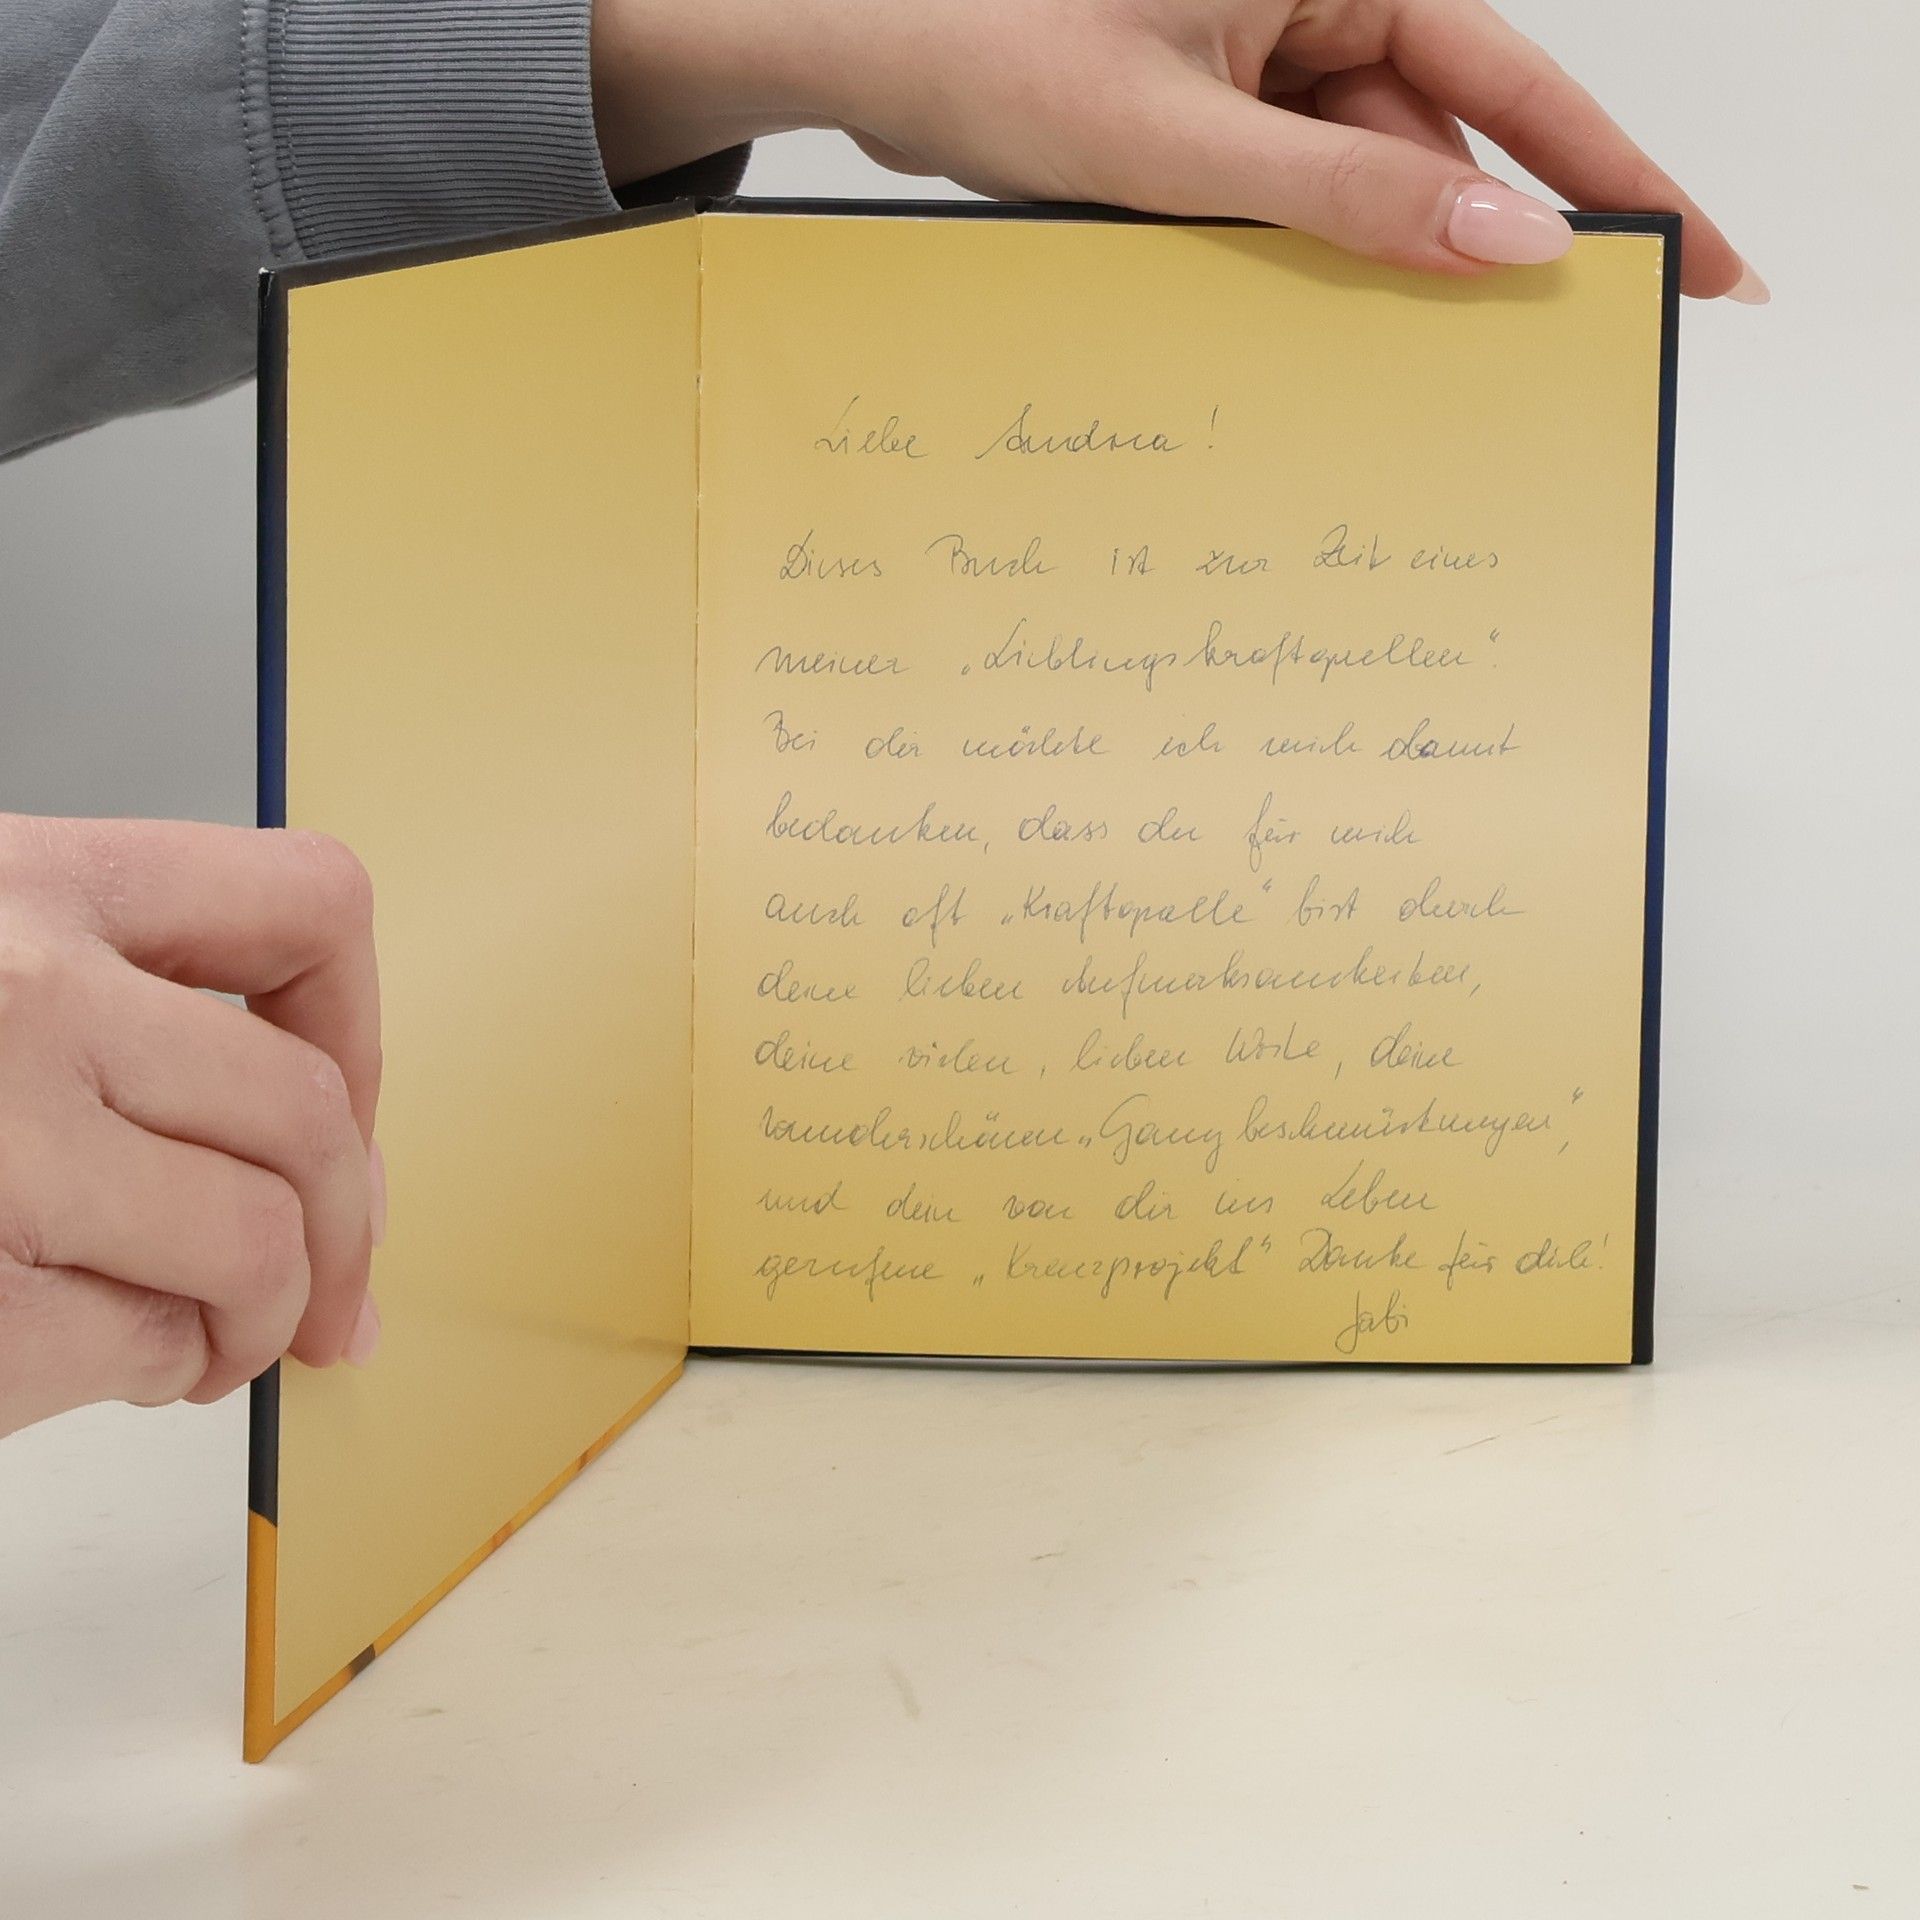 Liebe Andrea!
Dieses Buch ist zur Zeit eines
meiner „Lieblingskraftquellen“.
Bei dir möchte ich mich damit
bedanken, dass du für mich
auch oft „Kraftquelle“ bist durch
deine lieben Aufmerksamkeiten,
deine vielen, lieben Worte, deine
wunderschönen „Gangbeschmückungen“,
und dein von dir ins Leben
gerufene „Kreuzprojekt“ Danke für dich!
Gabi